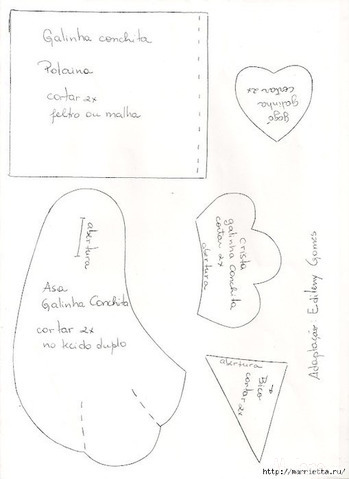 Galinha conchita
Polaina
cortar 2x
feltro ou malha
gogó
galinha
cortar 2x
abertura
Asa
Galinha Conchita
cortar 2x
no tecido duplo
crista
galinha conchita
cortar 2x
abertura
abertura
Bico
cortar 2x
Adaptação Edileny Gomes
https://marrietta.ru/